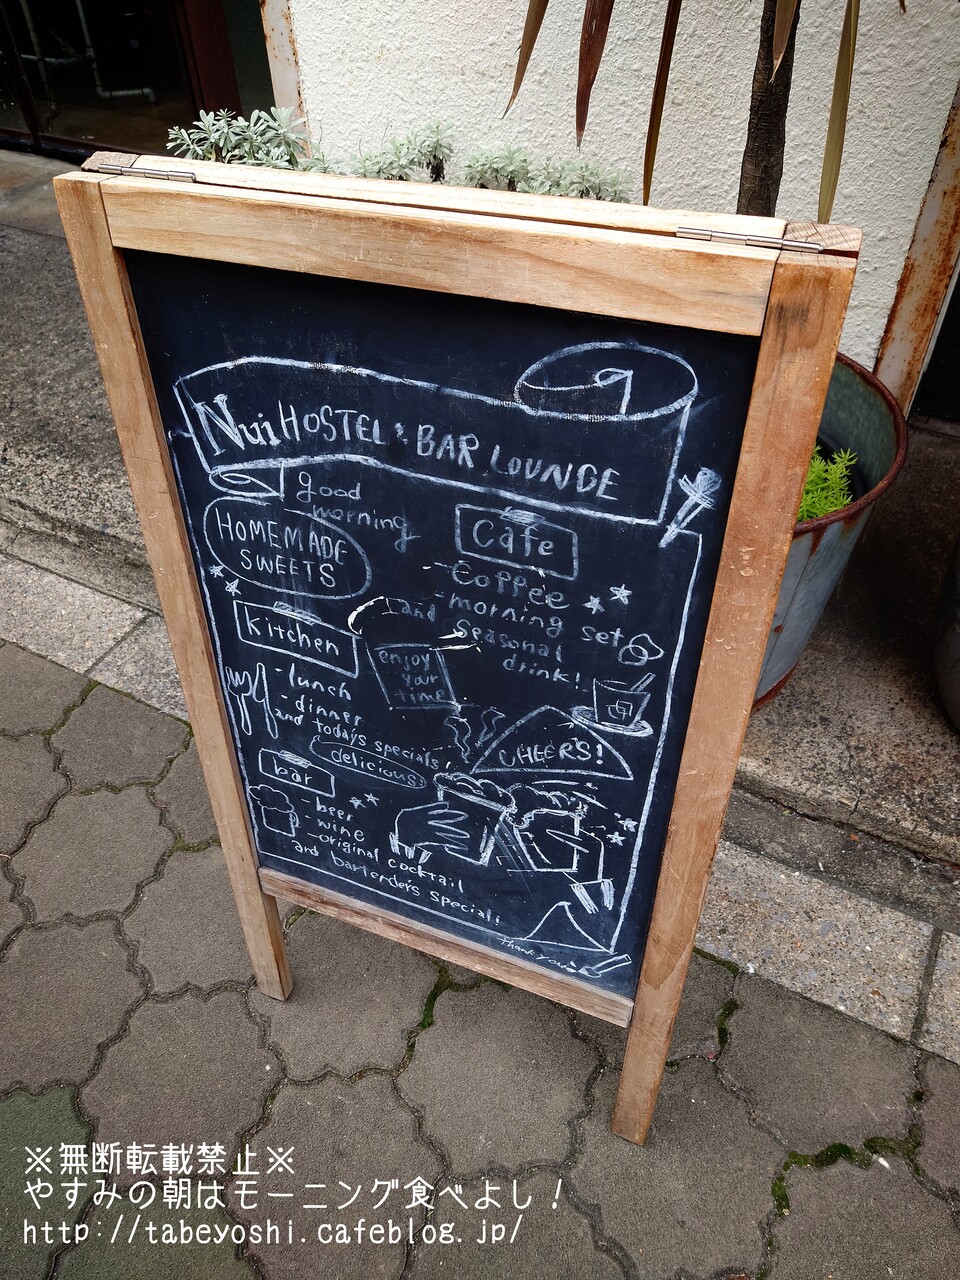 Nui HOSTEL & BAR LOUNGE
good
morning
HOMEMADE
SWEETS
Cafe
- Coffee
- morning set
and seasonal
drink!
kitchen
enjoy
your
time
- lunch
- dinner
and today's specials!
delicious
CHEERS!
bar
- beer
- wine
- original cocktail
and bartender's special!
thank you
※無断転載禁止※
やすみの朝はモーニング食べよし！
http://tabeyoshi.cafeblog.jp/